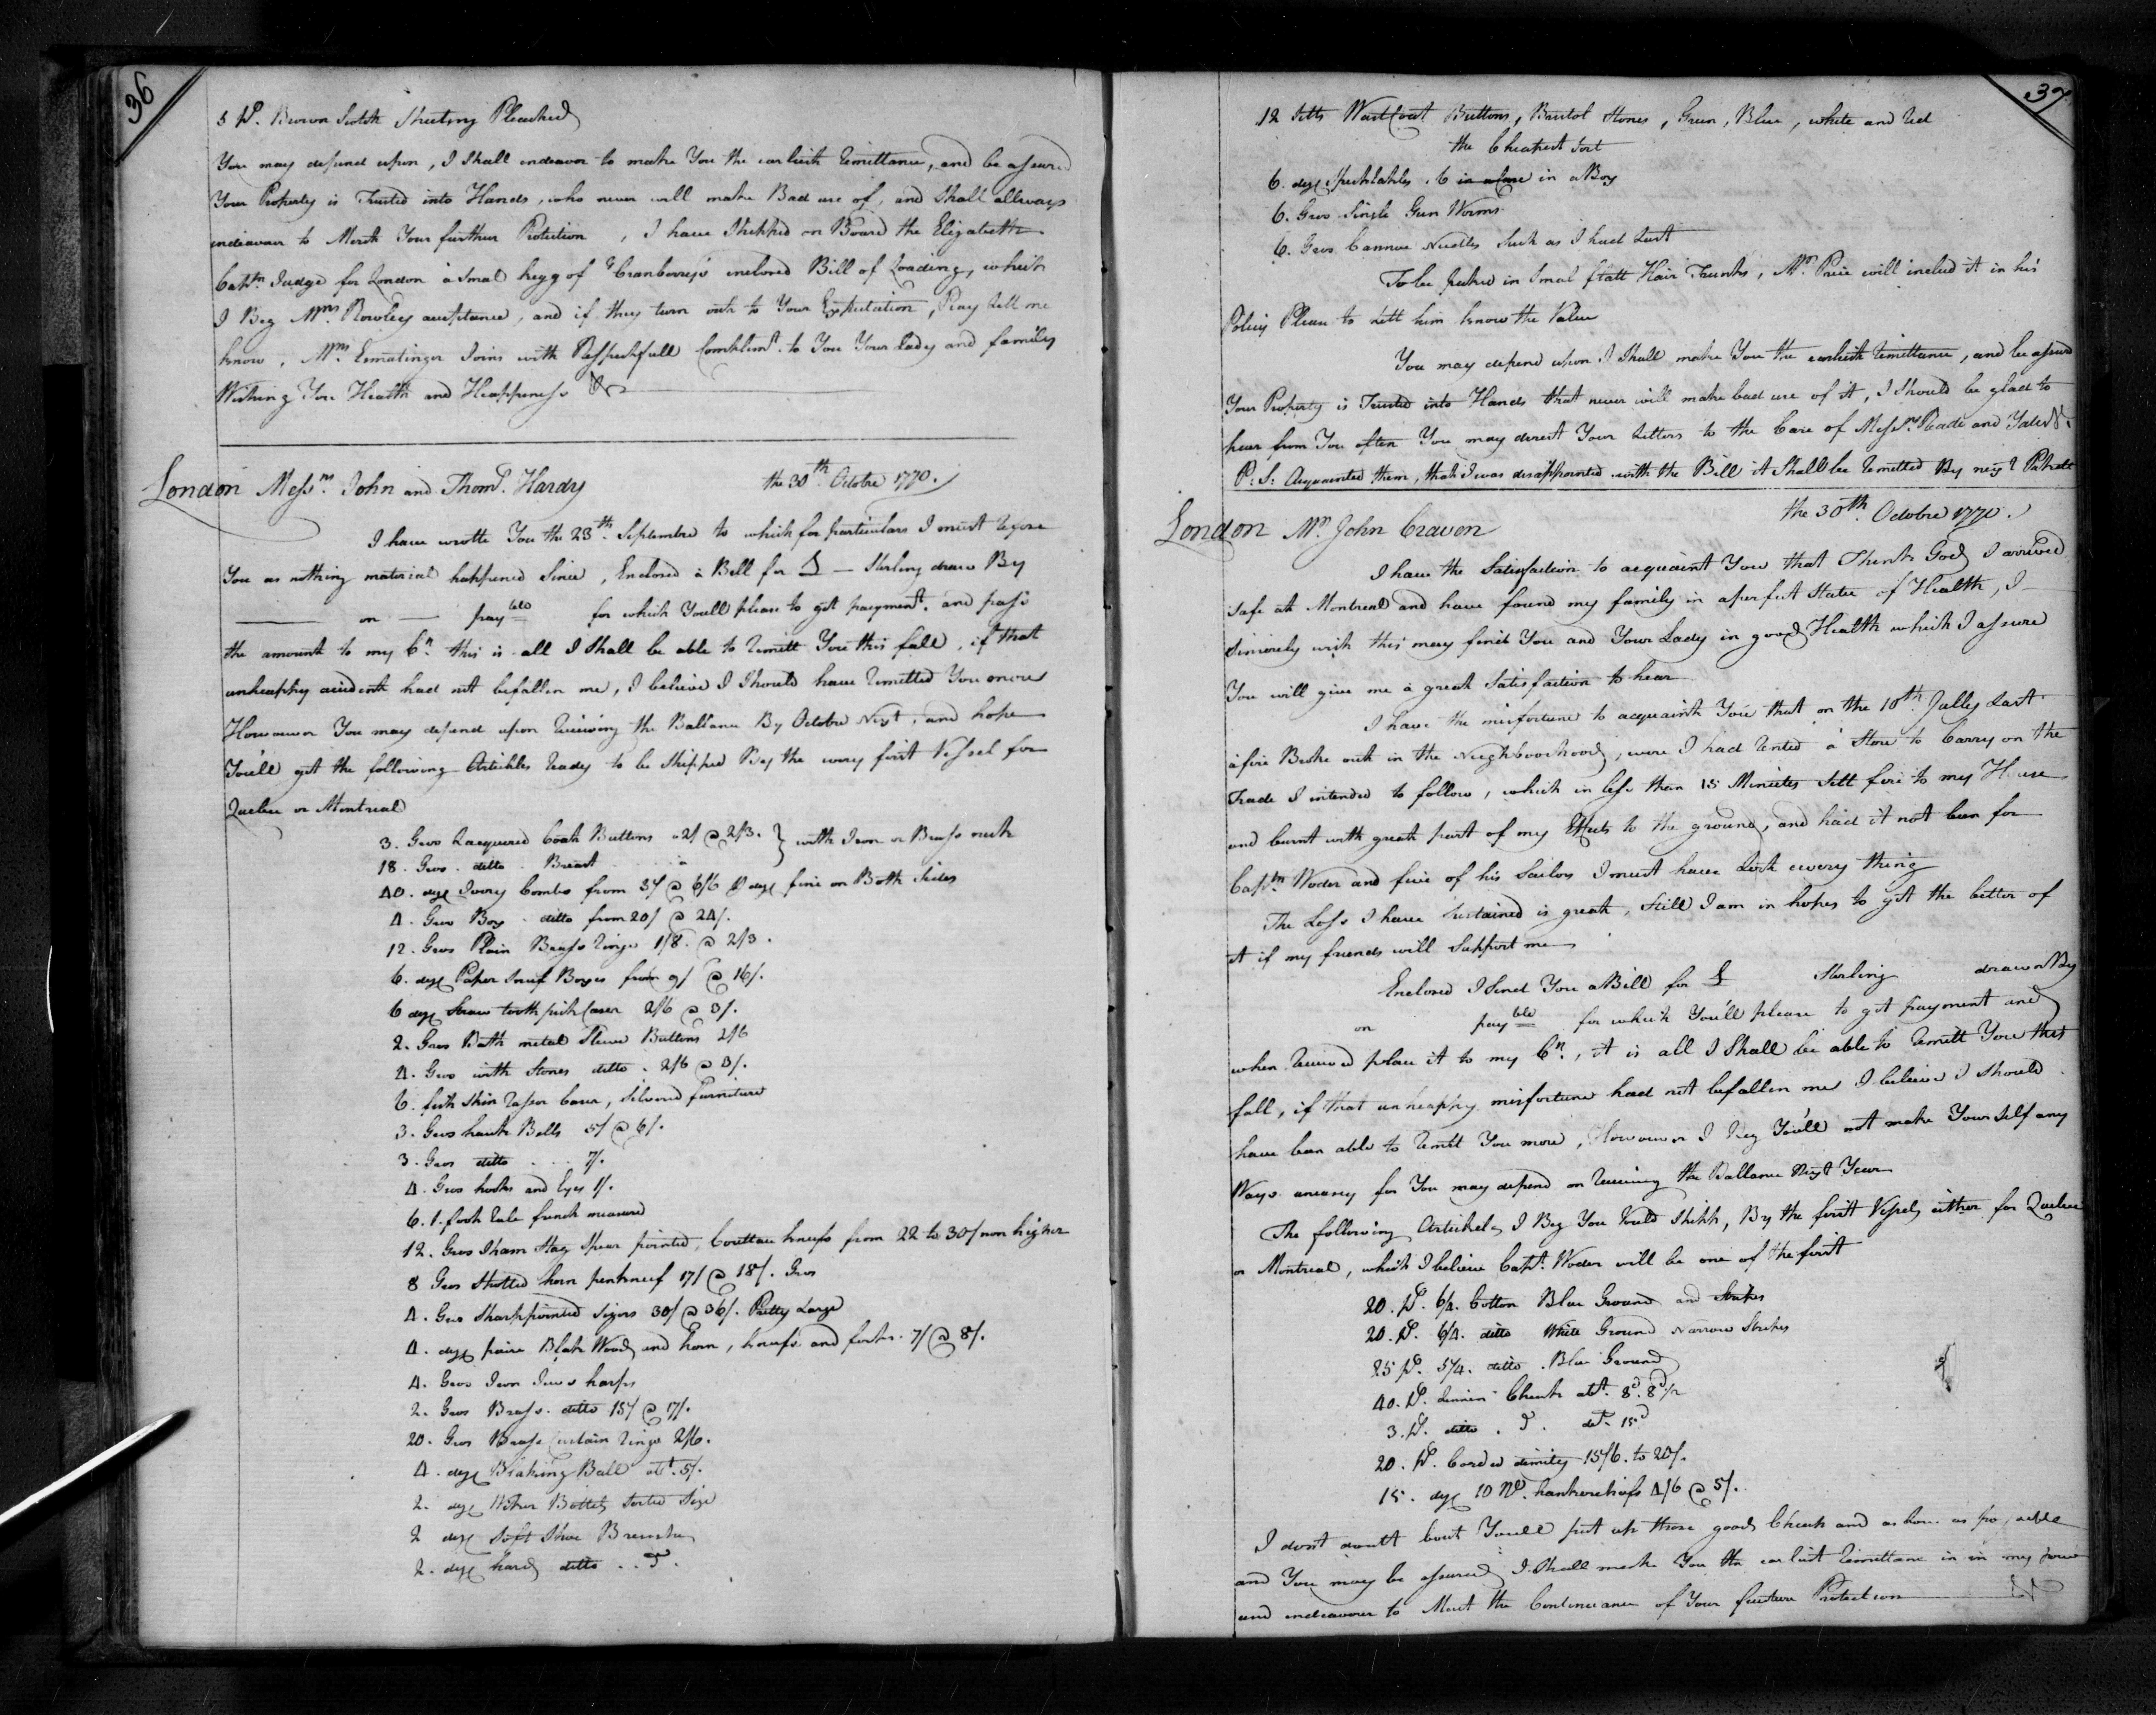 36
5 Ps. Brown Scotch Sheeting Pleached
You may depend upon, I Shall endeavor to make You the earliest Remittance, and be assured
Your Property is Trusted into Hands, who never will make Bad use of, and Shall allways
endeavour to Merit Your further Protection, I have Shipped on Board the Elizabeth
Captn Judge for London a Smal kegg of Cranberrys inclosed Bill of Loading, which
I Beg Mrs Rowley acceptance, and if they turn out to Your Expectation, Pray Lett me
know, Mrs Ermatinger Joins with Respectfull Complimts. to You Your Lady and family
Wishing You Health and Happiness &c
London Messrs. John and Thoms. Hardy the 30th. Octobre 1770.
I have wrotte You the 23th. Septembre to which for particulars I must refere
You as nothing material happened Since, Enclosed a Bill for £ — Sterling draw By
— on — payble for which Youll please to gett payment. and pass
the amount to my Ct. this is all I Shall be able to Remitt You this fall, if that
unheappy accident had not befallen me, I believe I Should have Remitted You more
Howewer You may depend upon Receiving the Ballance By Octobre Next, and hope
You'll gett the following Artickles Ready to be Shipped By the wery first Vessel for
Quebec or Montreal
3. Gros Lacquered Coat Buttons a 2/ @ 2/3. } with Iron or Brass neck
18. Gros. ditto. Breast
40. doz Ivory Combs from 3/ @ 6/6 P doz fine on Both Sides
4. Gros Box. ditto from 20/ @ 24/.
12. Gros Plain Brass Rings 1/8. @ 2/3.
6. doz Paper Snuf Boxes from 9/ @ 16/.
6 doz Straw tooth pick Cases 2/6 @ 3/.
2. Gros Bath metal Sleeve Buttons 2/6
4. Gros with Stones ditto. 2/6 @ 3/.
6. fish Skin Rasor Cases, Silvered furniture
3. Gros hawk Bells 5/ @ 6/.
3. Gros ditto . . . 7/.
4. Gros hooks and Eyes 1/.
6. 1. foot Rule french measured
12. Gros Sham Stag Spear pointed, Couttau kneifs from 22 to 30/ non higher
8 Gros Shotted horn penkneif 17/ @ 18/. Gros
4. Gros Sharp pointed Sizors 30/ @ 36/. Pretty Large
4. doz paire Black Wood and horn, kneifs and forks. 7/ @ 8/.
4. Gros Iron Jews harps
2. Gros Brass. ditto 15/ @ 17/.
20. Gros Brass Curtain Rings 2/6.
4. doz Blaking Ball att. 5/.
2. doz Bottels Sorted Size
2 doz Soft Shoe Brushes
2. doz hard ditto . . Do.
37
12 Setts Wastcoat Buttons, Bristol Stones, Green, Blue, white and Red
the Cheapest Sort
6. doz Specktakles. 6 in a Case in a Box
6. Gros Single Gun Worms
6. Gros Cannoe Needles Such as I had Last
To be packed in Smal flatt Hair Trunks, Mr. Price will includ it in his
Policy Please to Lett him know the Value
You may depend upon I Shall make You the earliest Remittance, and be assured
Your Property is Trusted into Hands that never will make bad use of it, I Should be glad to
hear from You often You may direct Your Letters to the Care of Messrs. Reade and Yates &c.
P: S: Acquainted them, that I was disappointed with the Bill it Shall be Remitted By next Pakett
London Mr. John Craven the 30th. Octobre 1770.
I have the Satisfaction to acquaint You that Thank God I arrived
Safe att Montreal and have found my family in a perfect State of Health, I
Sincerely wish this may find You and Your Lady in good Health which I assure
You will give me a great Satisfaction to hear
I have the misfortune to acquaint You that on the 10th Jully Last
a fire Broke out in the Neighboorhood, were I had Rented a Store to Carry on the
Trade I intended to follow, which in less than 15 Minutes Sett fire to my House
and burnt with great part of my Effects to the ground, and had it not been for
Captn Woder and five of his Sailors I must have Lost every thing
The Loss I have Sustained is great, Still I am in hopes to gett the better of
it if my friends will Support me
Enclosed I Send You a Bill for £ Sterling drawn By
on payble for which You'll please to gett payment and
when Received place it to my Ct., it is all I Shall be able to Remitt You this
fall, if that unheappy misfortune had not befallen me I believe I Should
have been able to Remitt You more, Howewer I Beg You'll not make Yourself any
Ways uneasy for You may depend on Receiving the Ballance Next Year
The following Artickels I Beg You Would Shipp, By the first Vessel either for Quebec
or Montreal, which I believe Capt. Woder will be one of the first
20. Ps. 6/4. Cotton Blue Ground and Stripes
20. Ps. 6/4. ditto White Ground Narrow Stripes
25 Ps. 5/4. ditto. Blue Ground
40. Ps. Linnen Check att. 8d. 8d1/2
3. Ps. ditto. Do. att. 15d
20. Ps. Corded dimity 15/6. to 20/.
15. doz 10 No. hankerchiefs 4/6 @ 5/.
I dont doutt bout Youll put up those goods Cheap and as Low as possible
and You may be assured I Shall make You the earliest Remittance in my power
and endeavour to Merit the Continuance of Your further Protection